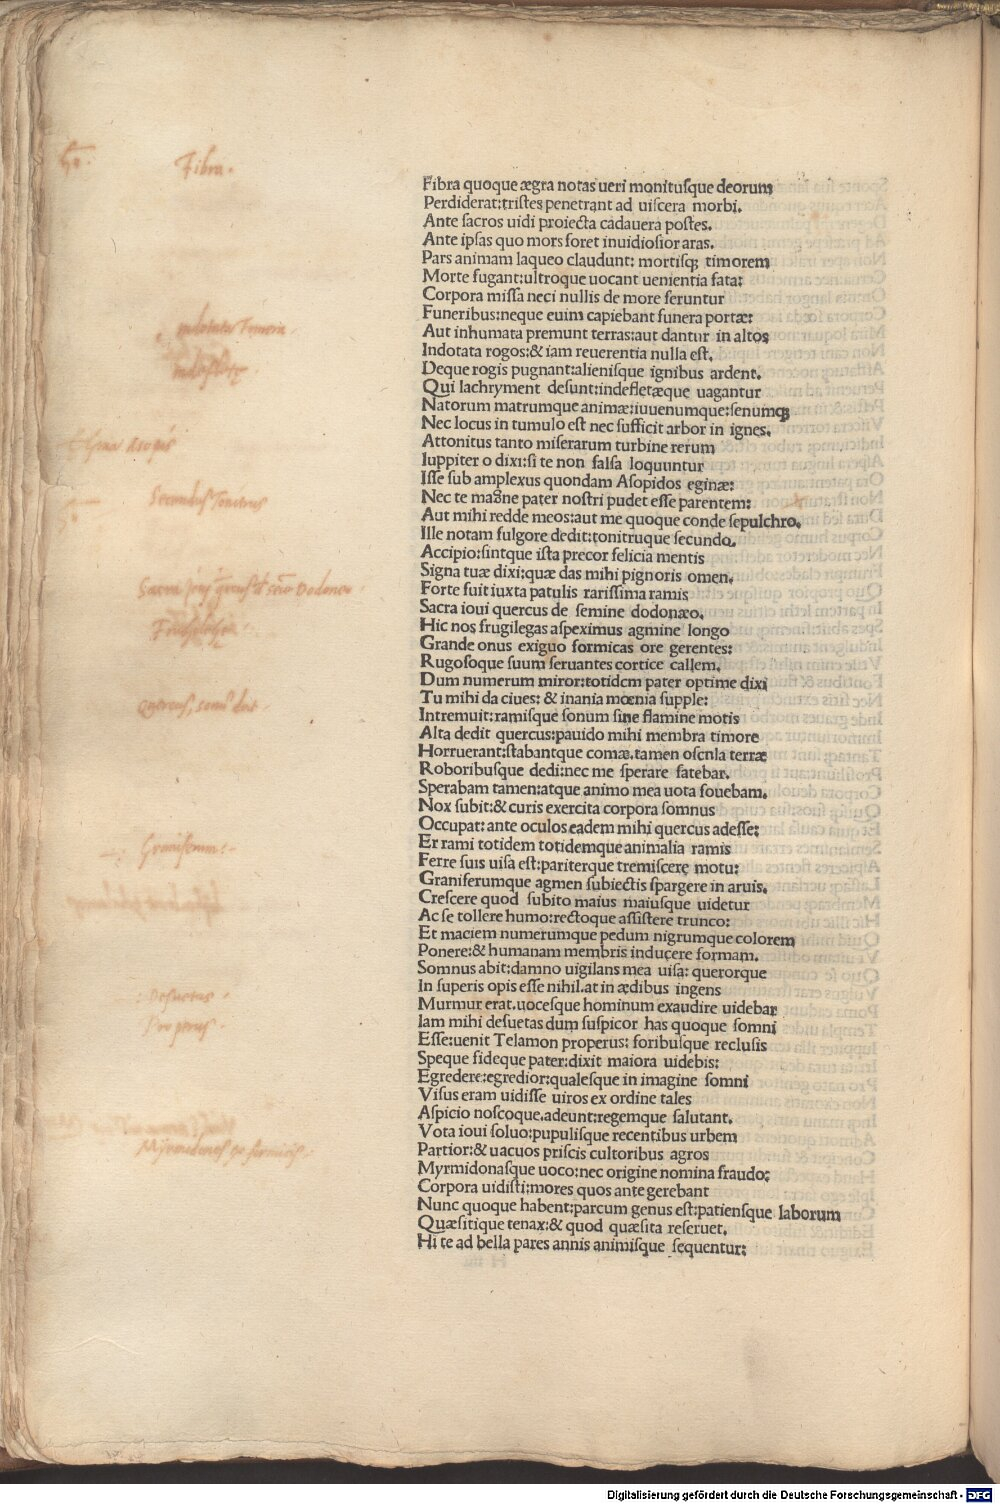 Fibra.
Fibra quoque ægra notas ueri monitusque deorum
Perdiderat:tristes penetrant ad uiscera morbi.
Ante sacros uidi proiecta cadauera postes.
Ante ipsas quo mors foret inuidiosior aras.
Pars animam laqueo claudunt: mortisqꝫ timorem
Morte fugant:ultroque uocant uenientia fata:
Corpora missa neci nullis de more feruntur
Funeribus:neque euim capiebant funera portæ:
Aut inhumata premunt terras:aut dantur in altos
Indotata rogos:& iam reuerentia nulla est.
Deque rogis pugnant:alienisque ignibus ardent.
Qui lachryment desunt:indefletæque uagantur
Natorum matrumque animæ:iuuenumque:senumqꝫ
Nec locus in tumulo est nec sufficit arbor in ignes.
Attonitus tanto miserarum turbine rerum
Iuppiter o dixi:si te non falsa loquuntur
Isse sub amplexus quondam Asopidos eginæ:
Nec te magne pater nostri pudet esse parentem:
Aut mihi redde meos:aut me quoque conde sepulchro.
Ille notam fulgore dedit:tonitruque secundo.
Accipio:sintque ista precor felicia mentis
Signa tuæ dixi:quæ das mihi pignoris omen.
Forte fuit iuxta patulis rarissima ramis
Sacra ioui quercus de semine dodonæo.
Hic nos frugilegas aspeximus agmine longo
Grande onus exiguo formicas ore gerentes:
Rugosoque suum seruantes cortice callem.
Dum numerum miror:totidem pater optime dixi
Tu mihi da ciues: & inania mœnia supple:
Intremuit:ramisque sonum sine flamine motis
Alta dedit quercus:pauido mihi membra timore
Horruerant:stabantque comæ.tamen oscnla terræ
Roboribusque dedi:nec me sperare fatebar.
Sperabam tamen:atque animo mea uota fouebam.
Nox subit:& curis exercita corpora somnus
Occupat: ante oculos eadem mihi quercus adesse:
Er rami totidem totidemque animalia ramis
Ferre suis uisa est:pariterque tremiscere motu:
Graniferumque agmen subiectis spargere in aruis.
Crescere quod subito maius maiusque uidetur
Ac se tollere humo:rectoque assistere trunco:
Et maciem numerumque pedum nigrumque colorem
Ponere:& humanam membris inducere formam.
Somnus abit:damno uigilans mea uisa: querorque
In superis opis esse nihil.at in ædibus ingens
Murmur erat.uocesque hominum exaudire uidebar
Iam mihi desuetas dum suspicor has quoque somni
Esse:uenit Telamon properus: foribusque reclusis
Speque fideque pater:dixit maiora uidebis:
Egredere:egredior:qualesque in imagine somni
Visus eram uidisse uiros ex ordine tales
Aspicio noscoque.adeunt:regemque salutant.
Vota ioui soluo:pupulisque recentibus urbem
Partior:& uacuos priscis cultoribus agros
Myrmidonasque uoco:nec origine nomina fraudo:
Corpora uidisti:mores quos ante gerebant
Nunc quoque habent:parcum genus est:patiensque laborum
Quæsitique tenax:& quod quæsita reseruet.
Hi te ad bella pares annis animisque sequentur:
Digitalisierung gefördert durch die Deutsche Forschungsgemeinschaft - DFG